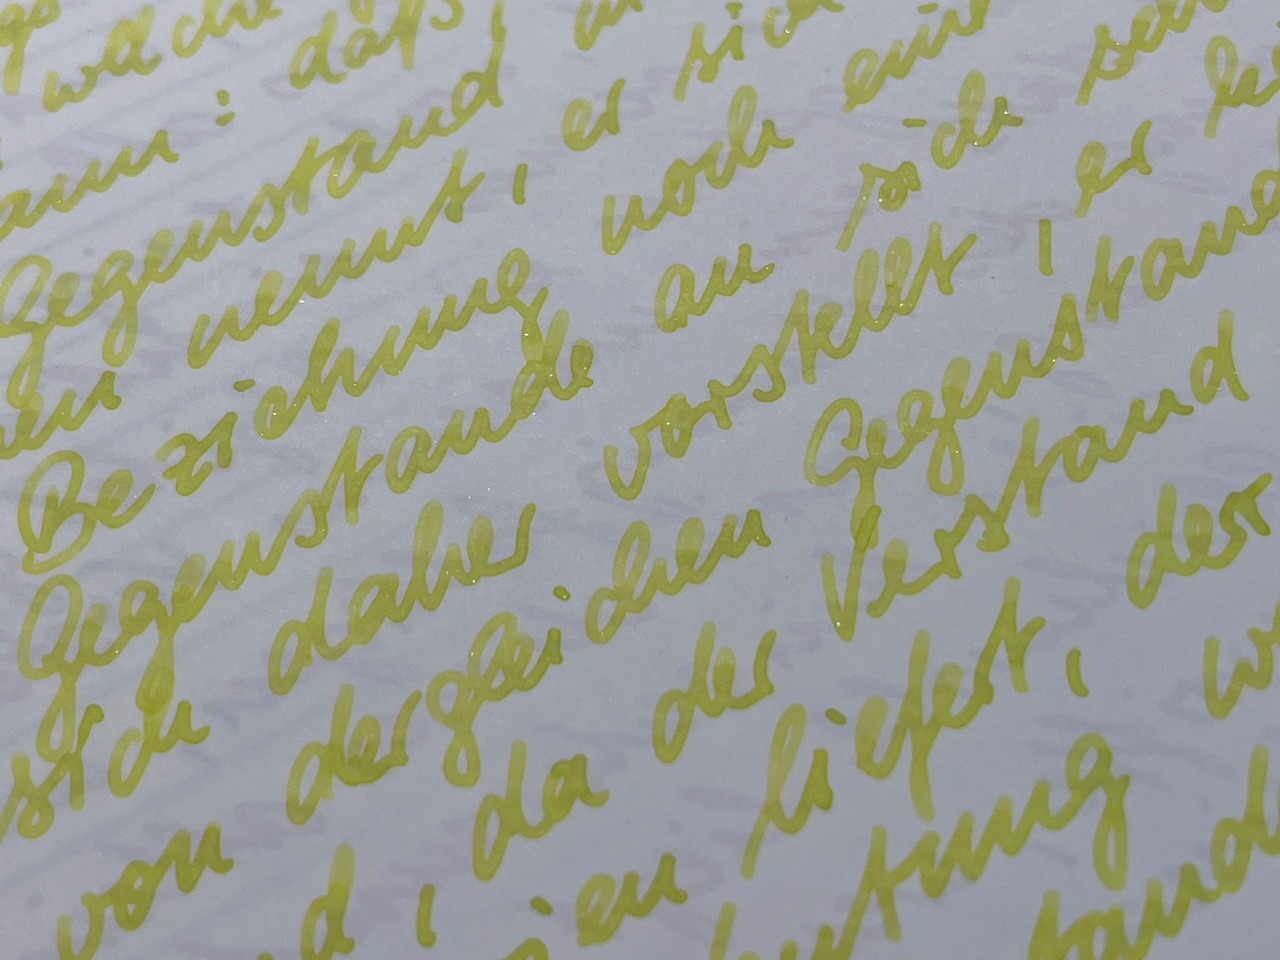 daß,
Gegenstand
nennt, er sich
Beziehung noch
Gegenstande an sich
sich daher vorstellt, er
von dergleichen Gegenstand
, da der Verstand
liefert, der